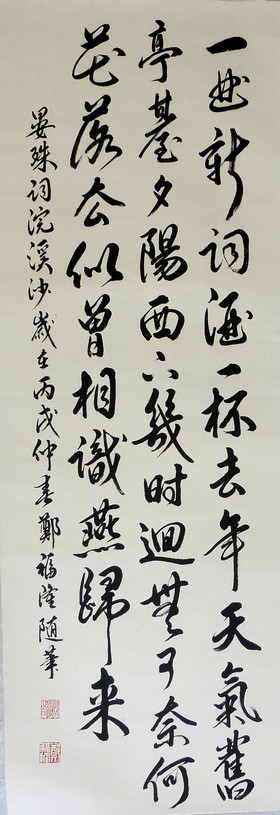 一曲新詞酒一杯去年天氣舊
亭臺夕陽西下幾時迴無可奈何
花落去似曾相識燕歸来
晏殊詞浣溪沙歲在丙戌仲春鄭福隆隨筆